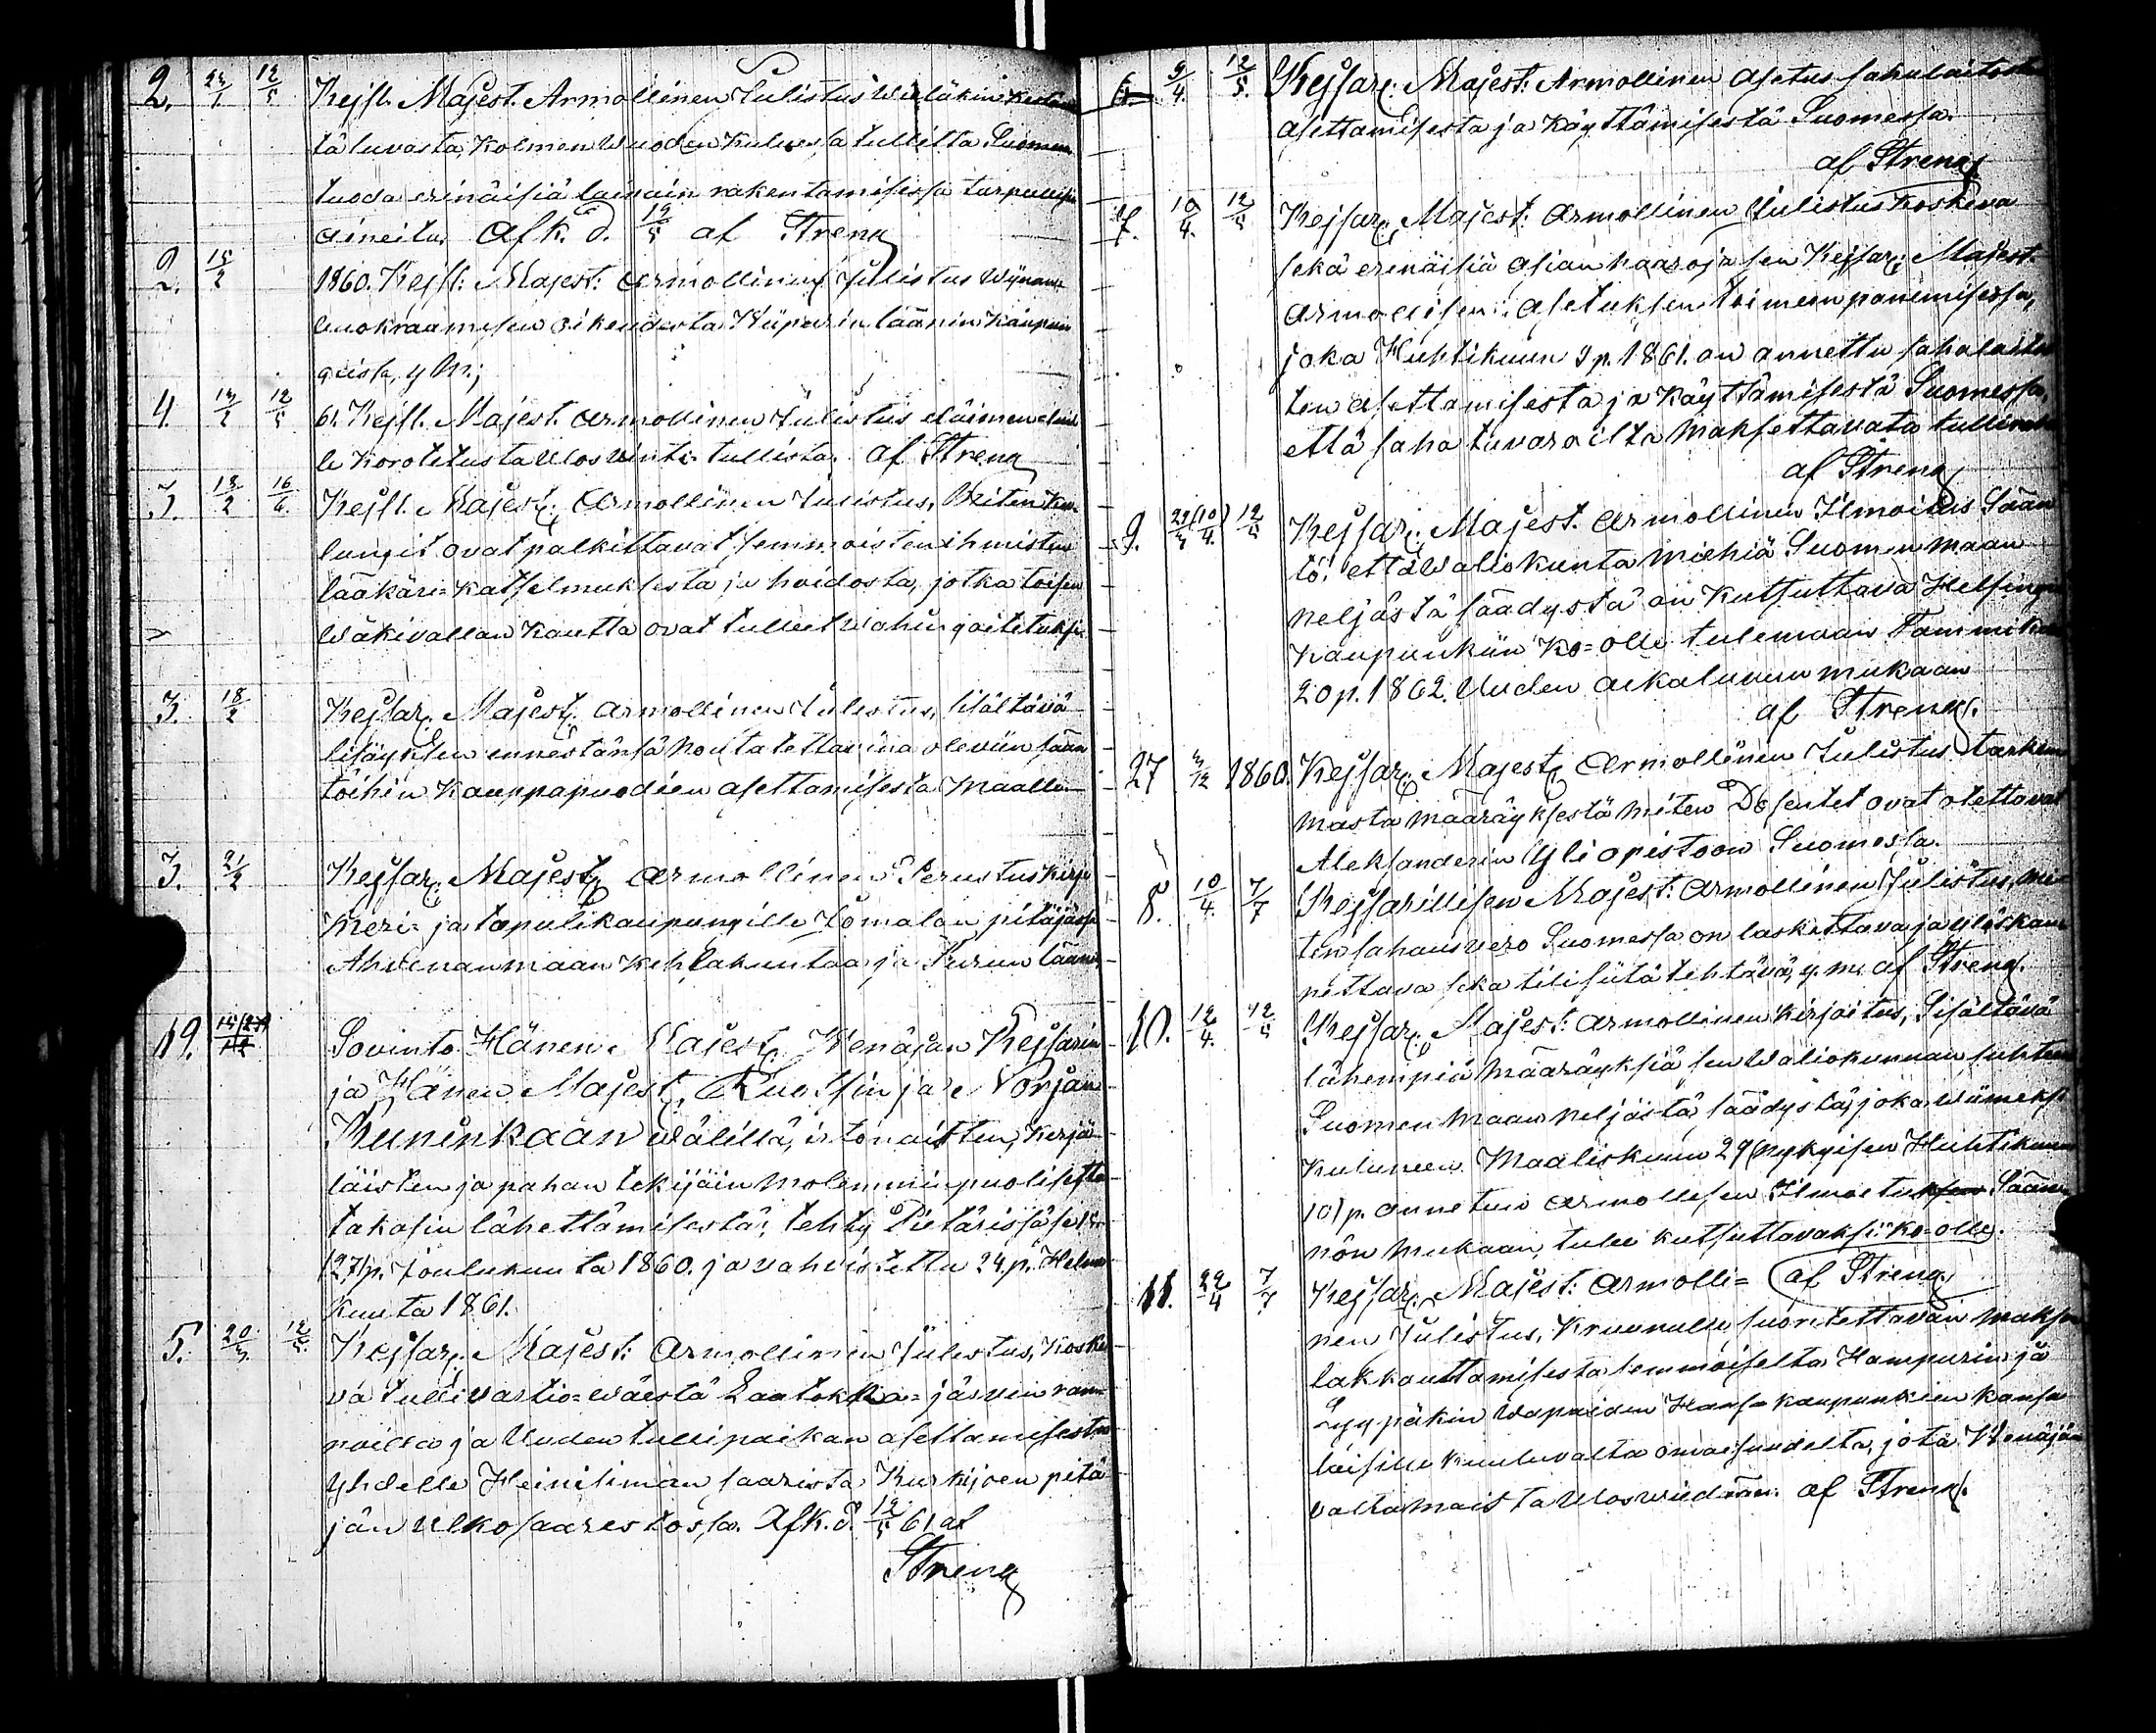 2. 24/1 12/5 Kejsl. Majest. Armollinen Julistus Wieläkin kestäwä
tä luvasta, Kolmen Wuoden kuluessa tullitta Suomeen
tuoda erinäisiä laivain rakentamisessa tarpeellisia
aineita. Afk. d. 12/5 af Streng
2. 15/2 1860. Kejsl: Majest: Armollinen Julistus Wiinan
wuokraamisen oikeudesta Wiipurin läänin kaupun
geissa, y. m.;
4. 14/2 12/5 61. Kejsl. Majest. Armollinen Julistus eläimen
le Korotetusta Uloswienti-tullista. af Streng
3. 18/2 16/6. Kejsl. Majest: Armollinen Julistus, Miten
lungit ovat palkittavat semmoisten ihmisten
lääkäri-katselmuksesta ja hoidosta, jotka toisen
Wäkivallan kautta ovat tulleet wahingoitetuksi
3. 18/2 Kejsar: Majest: Armollinen Julistus, sisältävä
lisäyksen ennestänsä noudatettavina oleviin sään
töihin Kauppapuodien asettamisesta Maalle
3. 21/2 Kejsar: Majest: Armollinen Perustuskirja
Meri- ja tapulikaupungille Jomalan pitäjässä
Ahvenanmaan kihlakuntaa ja Turun lääniä
19. 15(27)/12 Sovinto Hänen Majest: Wenäjän Kejsarin
ja Hänen Majest: Ruotsin ja Norjan
Kuninkaan wälillä, irtonaisten, kerjä
läisten ja pahan tekijäin molemminpuolisesta
takasin lähettämisestä; tehty Pietarissa se 15
(27) p. Joulukuuta 1860. ja vahvistettu 24. p. Helmi
kuuta 1861.
5. 20/3 12/5 Kejsar: Majest: Armollinen Julistus, Koske
va tullivartio-wäestä Laatokka-järvin ran
noilla ja Uuden tullipaikan asettamisesta
yhdelle Heinsiman saarista Kurkijoen pitä
jän ulkosaaristossa. Afk. d. 12/5 61 af
Streng
6. 9/4. 12/5. Kejsar: Majest: Armollinen Asetus sahalaitosten
asettamisesta ja käyttämisestä Suomessa.
af Streng
7. 10/4. 12/5 Kejsar: Majest: Armollinen Julistus koskeva
sekä erinäisiä asianhaaroja sen Kejsar: Majest.
Armollisen Asetuksen toimeenpanemisessa,
joka Huhtikuun 9 p. 1861. on annettu sahalaitos
ten asettamisesta ja käyttämisestä Suomessa,
että saha tavaroilta maksettavata tullirahaa
af Streng
9. 29/3 (10/4.) 12/5 Kejsar: Majest. Armollinen Ilmoitus Sään
tö: että Waliokunta miehiä Suomenmaan
neljästä säädystä on kutsuttava Helsingin
kaupunkiin ko-olle tulemaan Tammikuun
20 p. 1862. Uuden aikaluvun mukaan
af Streng.
27 3/12 1860. Kejsar: Majest: Armollinen Julistus tarkem
masta määräyksestä miten Dosentit ovat otettavat
Aleksanderin Yliopistoon Suomessa.
8. 10/4. 7/7 Kejsarillisen Majest: Armollinen Julistus, mi
ten sahausvero Suomessa on laskettava ja ylöskan
nettava sekä tili siitä tehtävä, y. m. af Streng.
10. 12/4. 12/5 Kejsar: Majest: Armollinen Kirjoitus, Sisältävä
lähempiä Määräyksiä sen Waliokunnan suhteen
Suomenmaan neljästä säädystä, joka wiimeksi
kuluneen Maaliskuun 29 (nykyisen Huhtikuun
10) p. annetun Armollisen Ilmoitus Sään
nön mukaan, tulee kutsuttavaksi ko-olle.
11. 22/4 7/7 Kejsar: Majest: Armolli= af Streng
nen Julistus, Kruunulle suoritettavain maksun
lakkauttamisesta semmoiselta Hampurin ja
Lyypäkin Wapaiden Hansa kaupunkien kansa
laisille kuuluvalta omaisuudelta, jota Wenäjän
valtamaista Uloswiedään. af Streng.